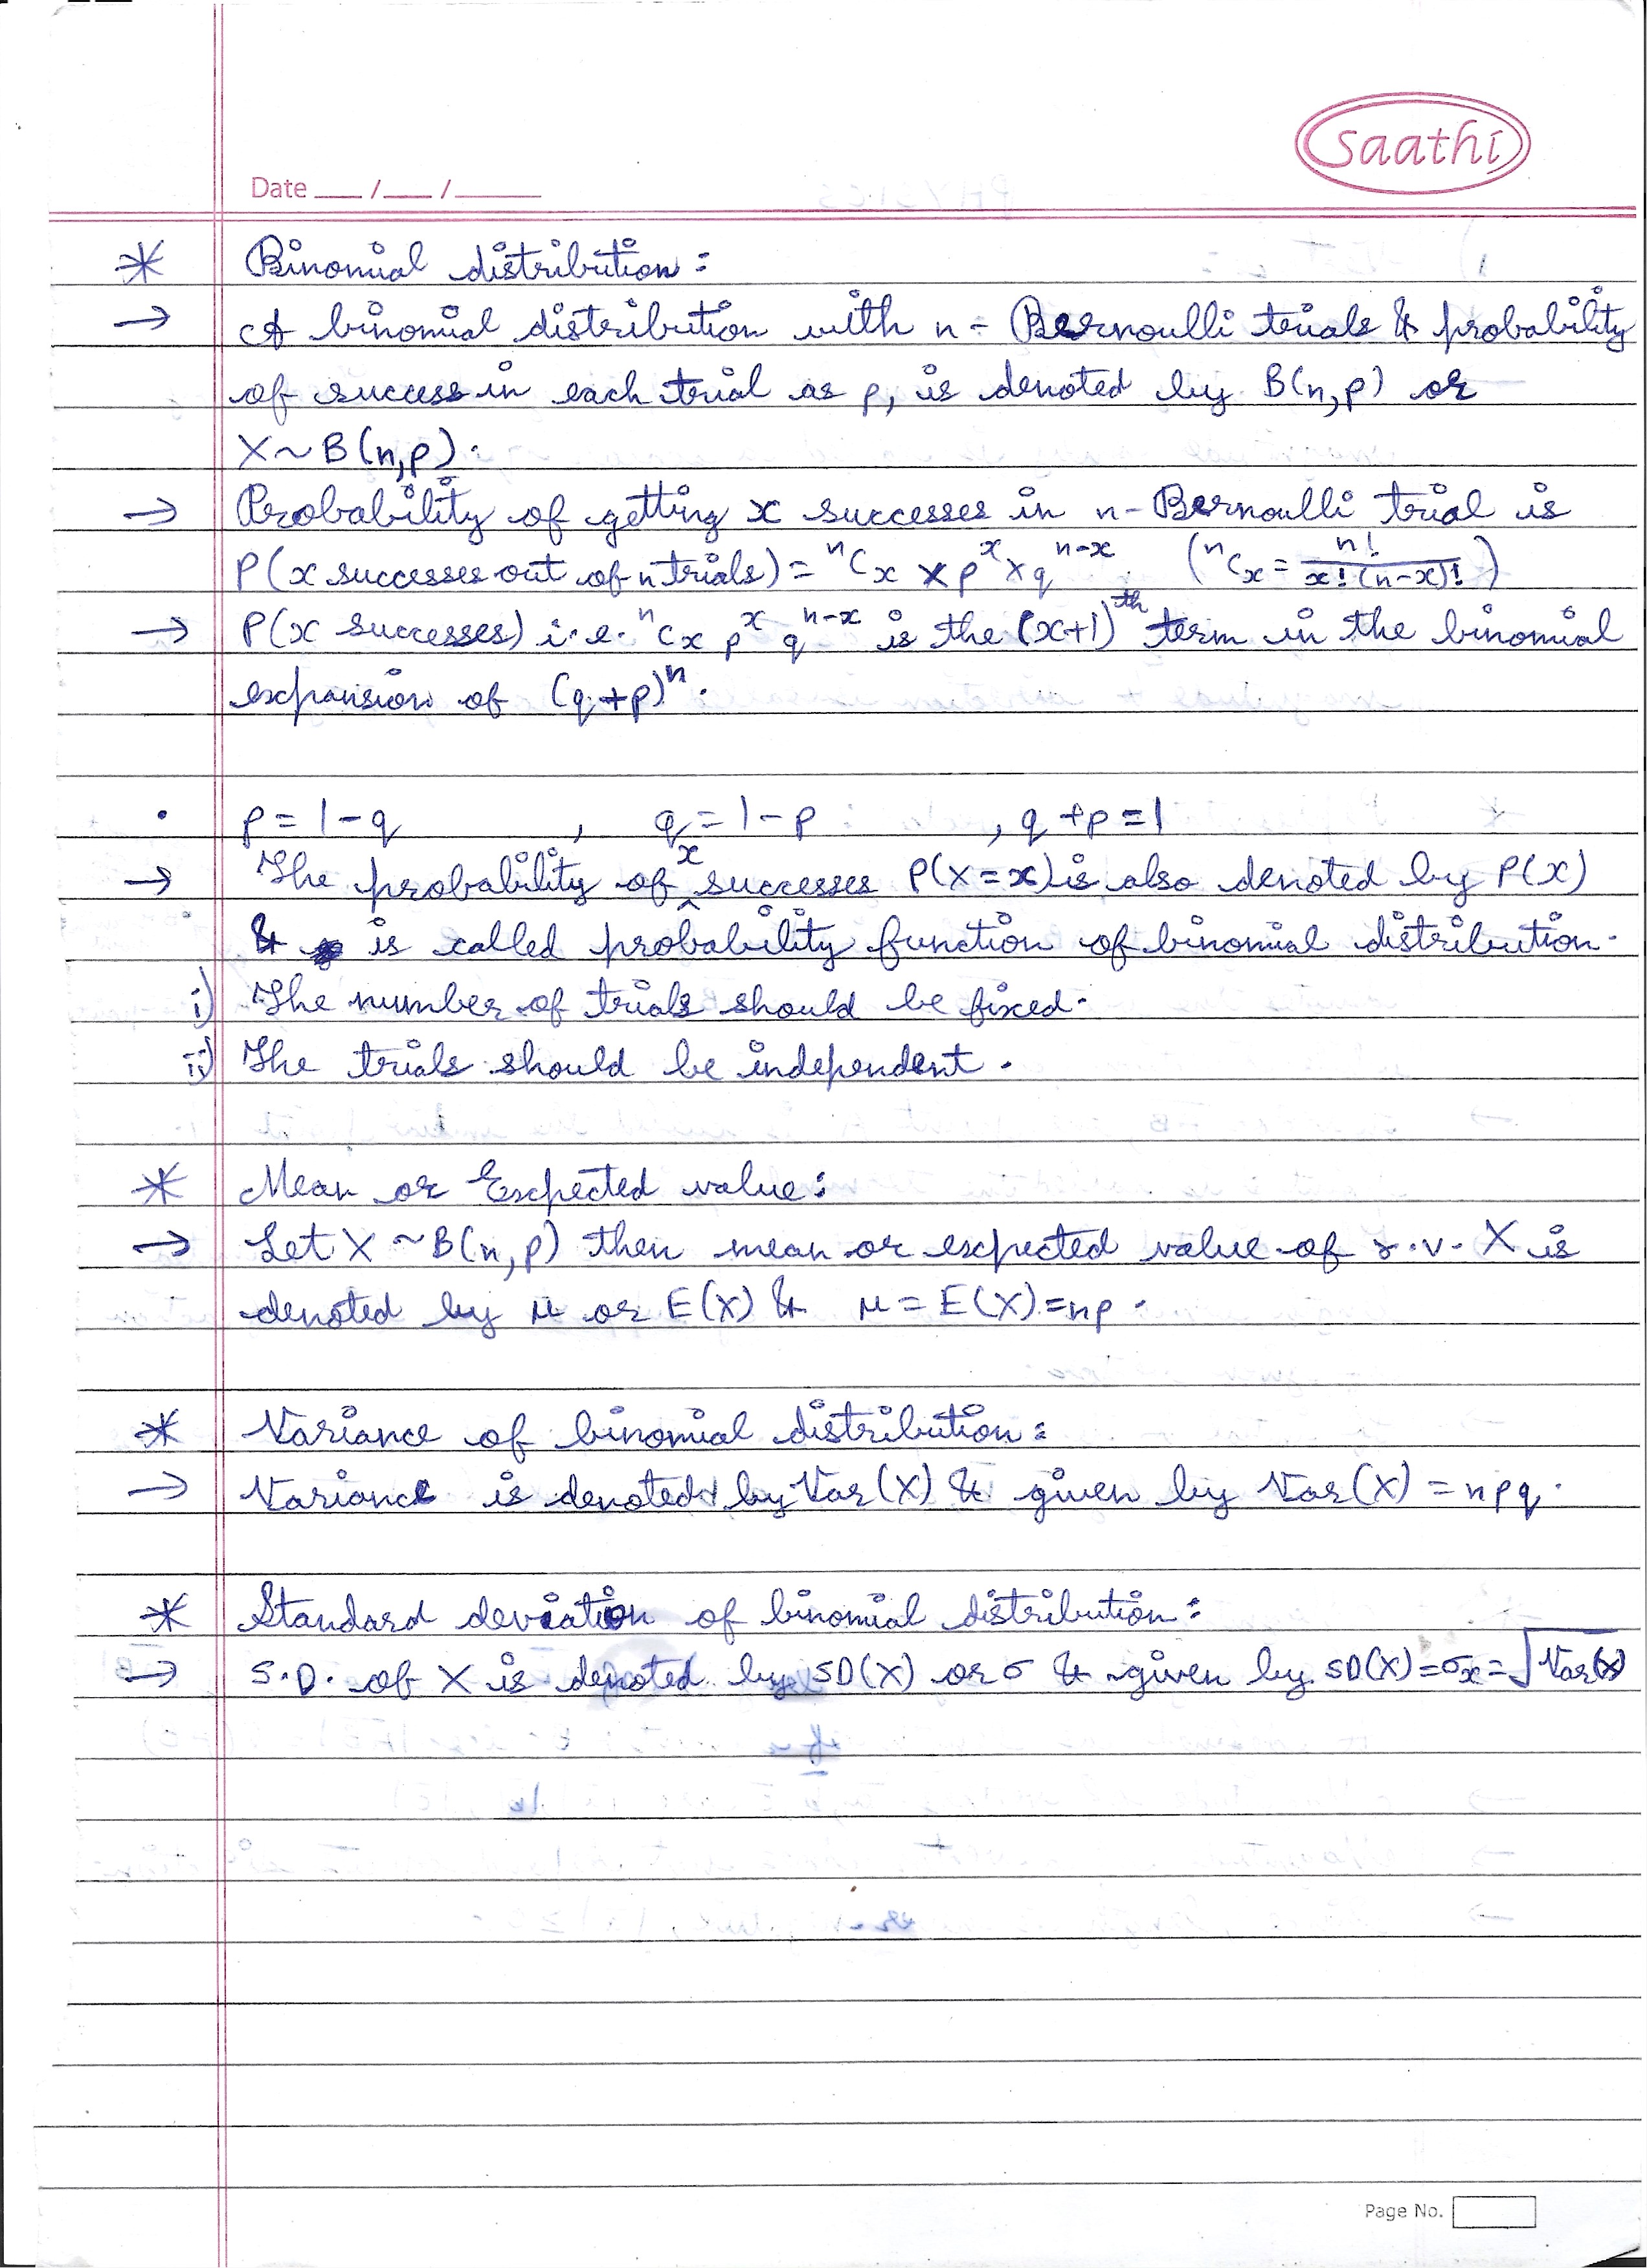 saathi
Date ___ / ___ / ______
* Binomial distribution :
→ A binomial distribution with n - Bernoulli trials & probability
of success in each trial as p, is denoted by B(n,p) or
X ~ B(n,p).
→ Probability of getting x successes in n - Bernoulli trial is
P(x successes out of n trials) = ⁿCₓ × pˣ × qⁿ⁻ˣ. (ⁿCₓ = n! / x! (n-x)!)
→ P(x successes) i.e. ⁿCₓ pˣ qⁿ⁻ˣ is the (x+1)ᵗʰ term in the binomial
expansion of (q+p)ⁿ.
• p = 1-q , q = 1-p , q+p=1
→ The probability of x successes P(X=x) is also denoted by P(x)
& is called probability function of binomial distribution.
i) The number of trials should be fixed.
ii) The trials should be independent.
* Mean or Expected value :
→ Let X ~ B(n,p) then mean or expected value of r.v. X is
denoted by μ or E(X) & μ = E(X) = np.
* Variance of binomial distribution :
→ Variance is denoted by Var(X) & given by Var(X) = npq.
* Standard deviation of binomial distribution :
→ S.D. of X is denoted by SD(X) or σ & given by SD(X) = σₓ = √Var(X)
Page No.